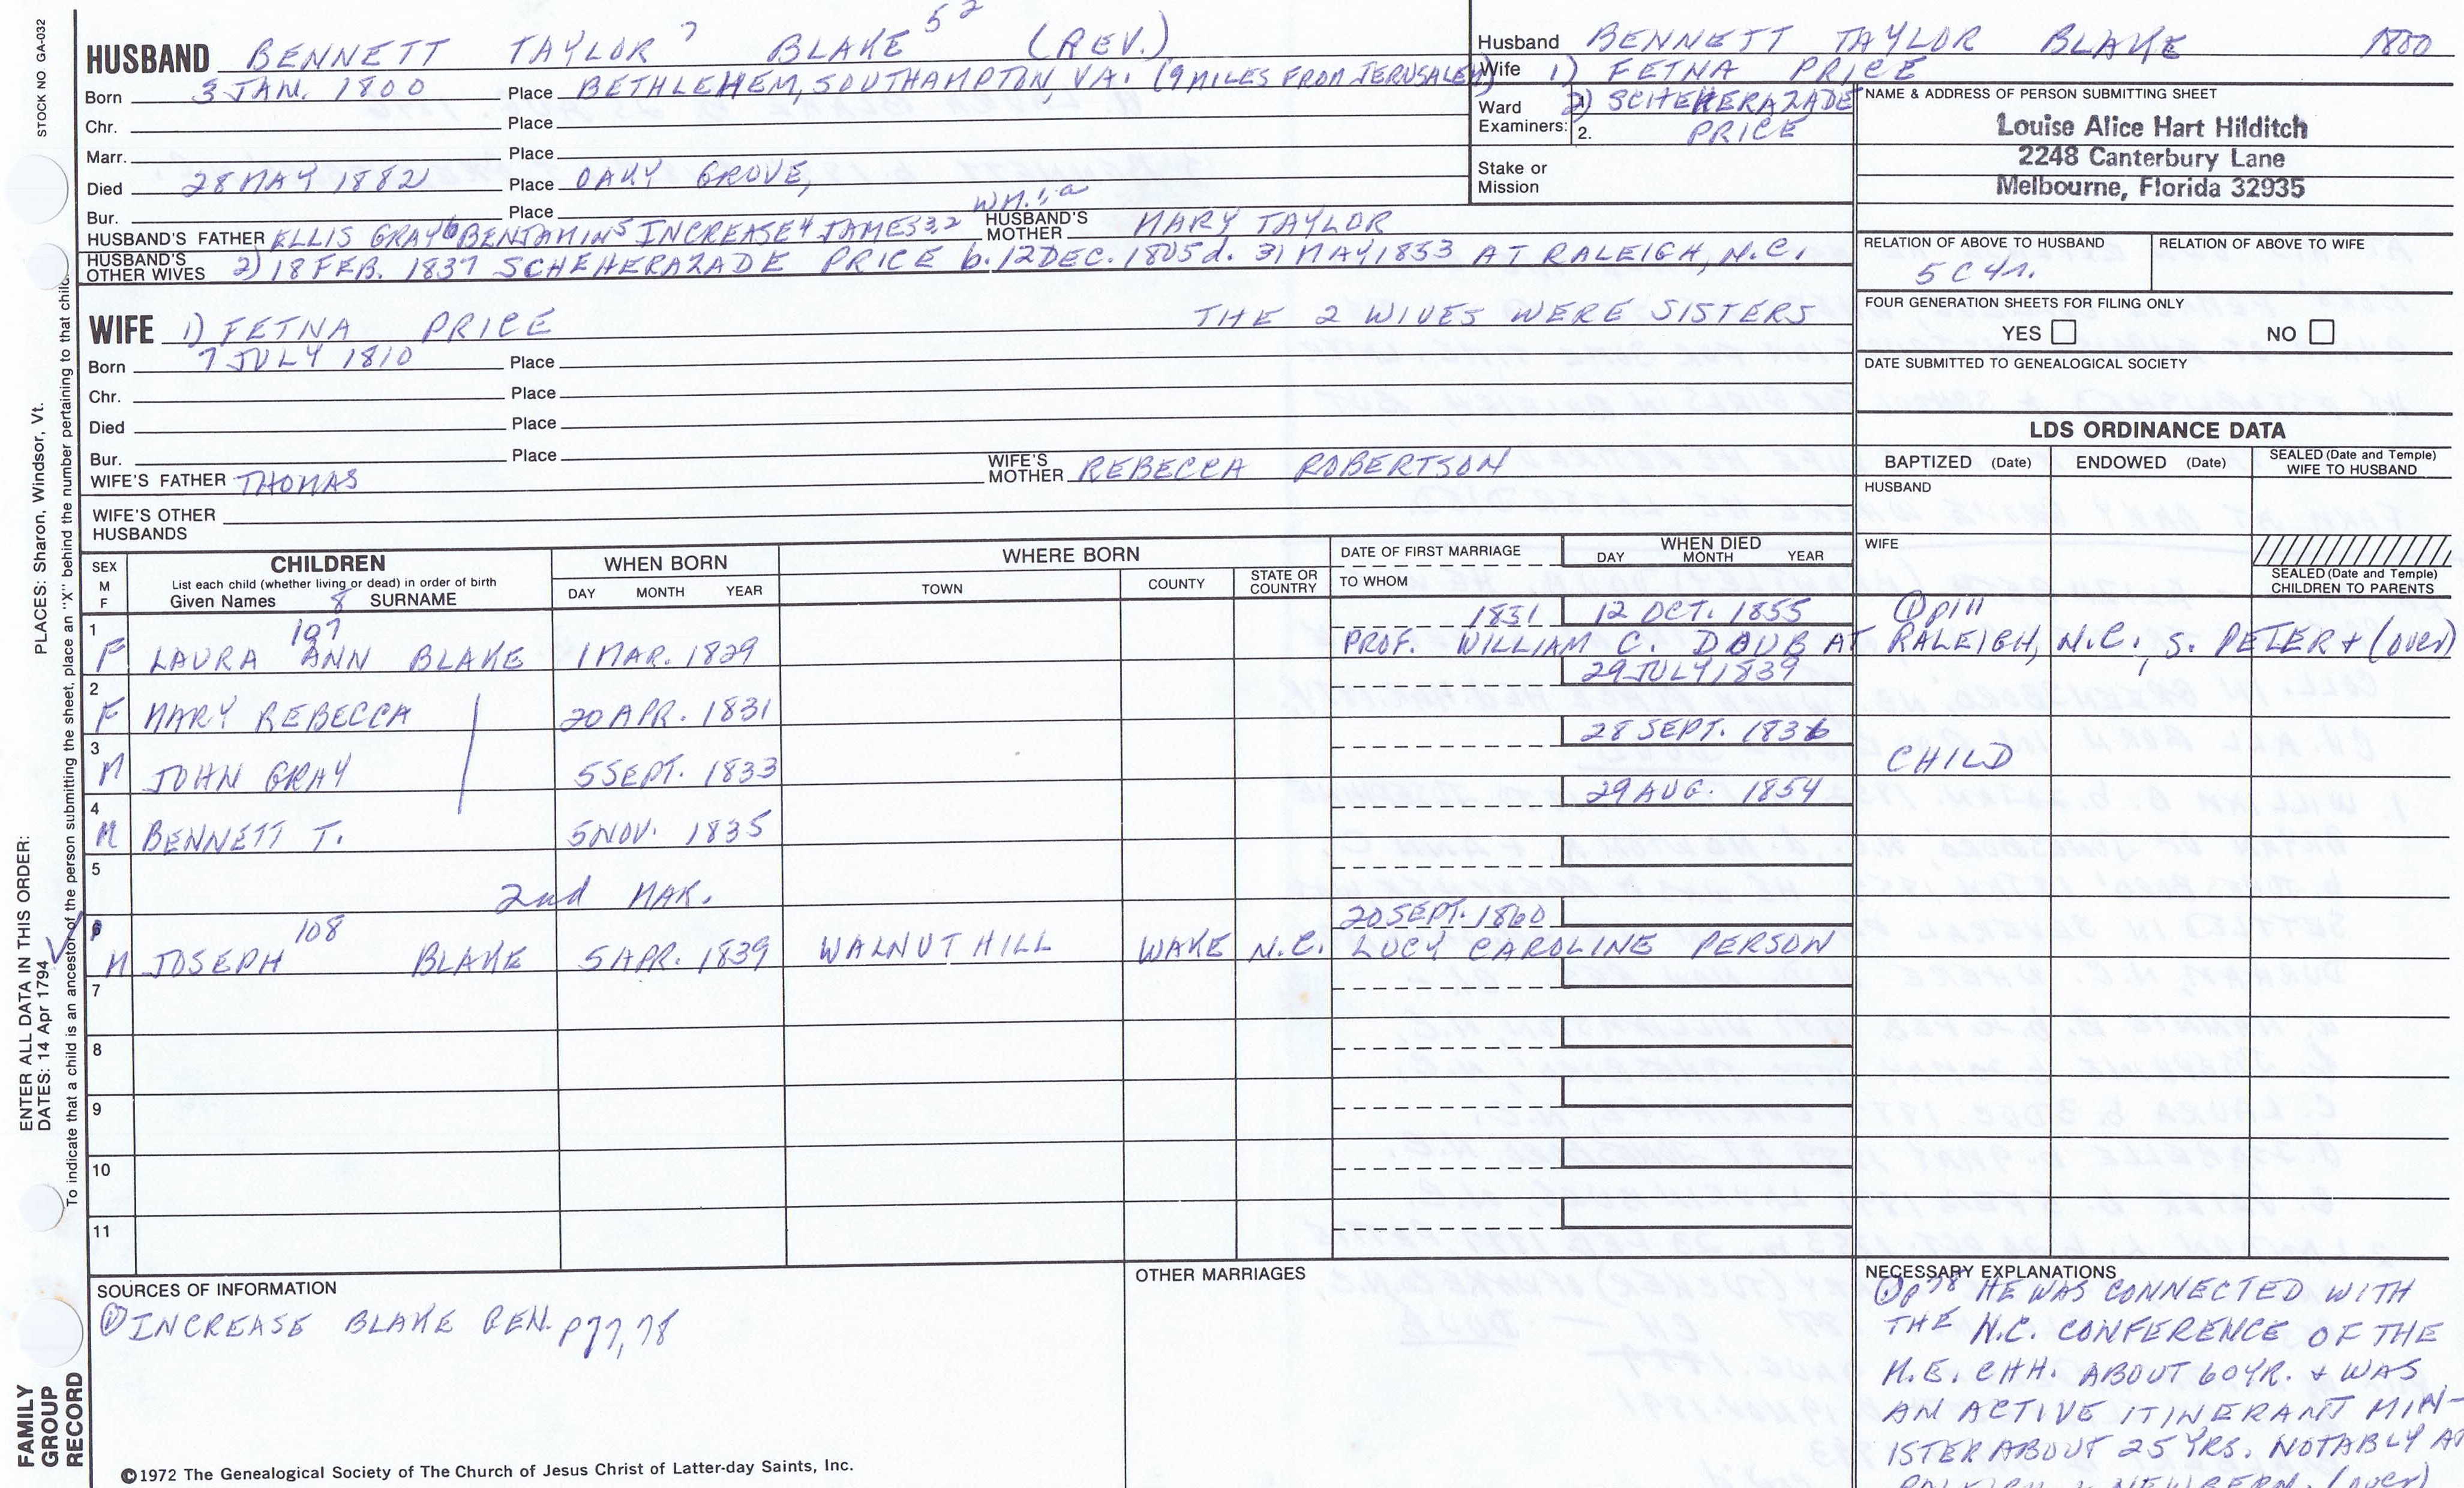 STOCK NO GA-032
HUSBAND BENNETT TAYLOR 7 BLAKE 52 (REV.)
Born 3 JAN. 1800 Place BETHLEHEM, SOUTHAMPTON, VA. (9 MILES FROM JERUSALEM)
Chr. Place
Marr. Place
Died 28 MAY 1882 Place OAKY GROVE,
Bur. Place
HUSBAND'S FATHER ELLIS GRAY 6 BENJAMIN 5 INCREASE 4 JAMES 3,2 WM. 1,a HUSBAND'S MOTHER MARY TAYLOR
HUSBAND'S OTHER WIVES 2) 18 FEB. 1837 SCHEHERAZADE PRICE b. 12 DEC. 1805 d. 31 MAY 1853 AT RALEIGH, N.C.
WIFE 1) FETNA PRICE THE 2 WIVES WERE SISTERS
Born 7 JULY 1810 Place
Chr. Place
Died Place
Bur. Place
WIFE'S FATHER THOMAS WIFE'S MOTHER REBECCA ROBERTSON
WIFE'S OTHER HUSBANDS
Husband BENNETT TAYLOR BLAKE 1800
Wife 1) FETNA PRICE
Ward Examiners: 1. 2) SCHEHERAZADE
2. PRICE
Stake or Mission
NAME & ADDRESS OF PERSON SUBMITTING SHEET
Louise Alice Hart Hilditch
2248 Canterbury Lane
Melbourne, Florida 32935
RELATION OF ABOVE TO HUSBAND RELATION OF ABOVE TO WIFE
5C4r.
FOUR GENERATION SHEETS FOR FILING ONLY
YES NO
DATE SUBMITTED TO GENEALOGICAL SOCIETY
LDS ORDINANCE DATA
BAPTIZED (Date) ENDOWED (Date) SEALED (Date and Temple) WIFE TO HUSBAND
HUSBAND
WIFE
SEALED (Date and Temple) CHILDREN TO PARENTS
SEX M F
CHILDREN
List each child (whether living or dead) in order of birth
Given Names 8 SURNAME
WHEN BORN
DAY MONTH YEAR
WHERE BORN
TOWN COUNTY STATE OR COUNTRY
DATE OF FIRST MARRIAGE
TO WHOM
WHEN DIED
DAY MONTH YEAR
1 107 1851 12 OCT. 1855 ① p111
F LAURA ANN BLAKE 1 MAR. 1829 PROF. WILLIAM C. DOUB AT RALEIGH, N.C., S. PETER + (over)
2 29 JULY 1839
F MARY REBECCA 20 APR. 1831
3 28 SEPT. 1836
M JOHN GRAY 5 SEPT. 1833 CHILD
4 29 AUG. 1854
M BENNETT T. 5 NOV. 1835
5
2nd MAR.
6 108 20 SEPT. 1860
M JOSEPH BLAKE 5 APR. 1839 WALNUT HILL WAKE N.C. LUCY CAROLINE PERSON
7
8
9
10
11
SOURCES OF INFORMATION
① INCREASE BLAKE GEN. p77,78
OTHER MARRIAGES
NECESSARY EXPLANATIONS
① p78 HE WAS CONNECTED WITH
THE N.C. CONFERENCE OF THE
M.E. CHH. ABOUT 60 YR. + WAS
AN ACTIVE ITINERANT MIN-
ISTER ABOUT 25 YRS. NOTABLY AT
RALEIGH + NEWBERN. (over)
©1972 The Genealogical Society of The Church of Jesus Christ of Latter-day Saints, Inc.
FAMILY GROUP RECORD
ENTER ALL DATA IN THIS ORDER:
DATES: 14 Apr 1794
PLACES: Sharon, Windsor, Vt.
To indicate that a child is an ancestor of the person submitting the sheet, place an "X" behind the number pertaining to that child.